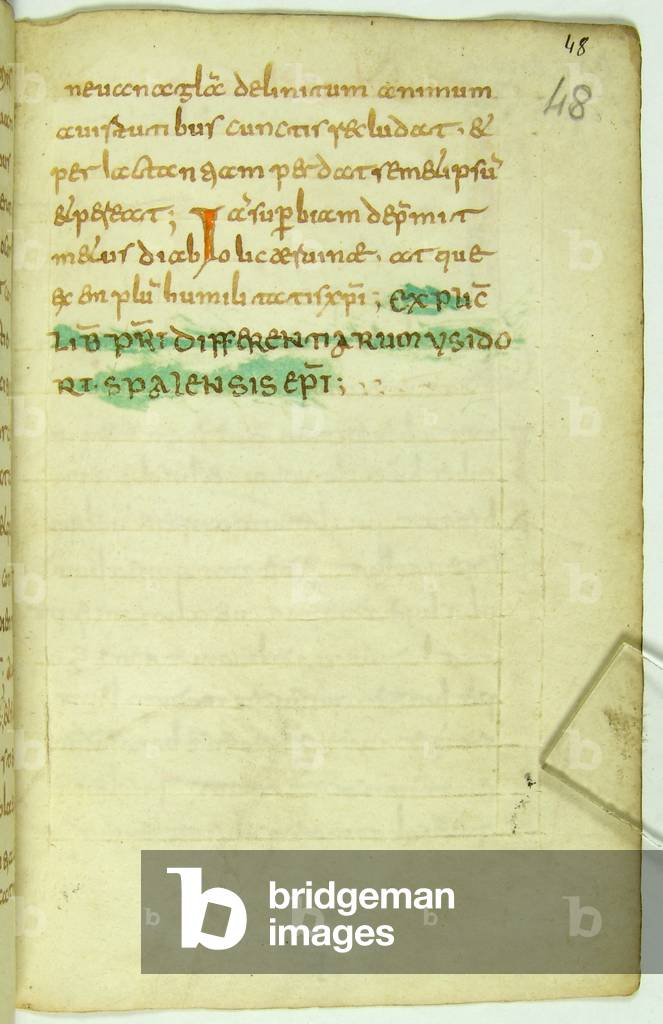 48
48
ne uana glã delinitum animum
a uirtutibus cunctis recludat · &
per iactantiam perdat semetipsũ
et pereat ;
Iã superbiam dep̃mit
metus diabolicæ ruinæ · atque
exenplũ humilitatis xp̃i ; explic̃
lib̃ p̃ri differentiarum ysido
ri · spalensis ep̃i ;
bridgeman
images